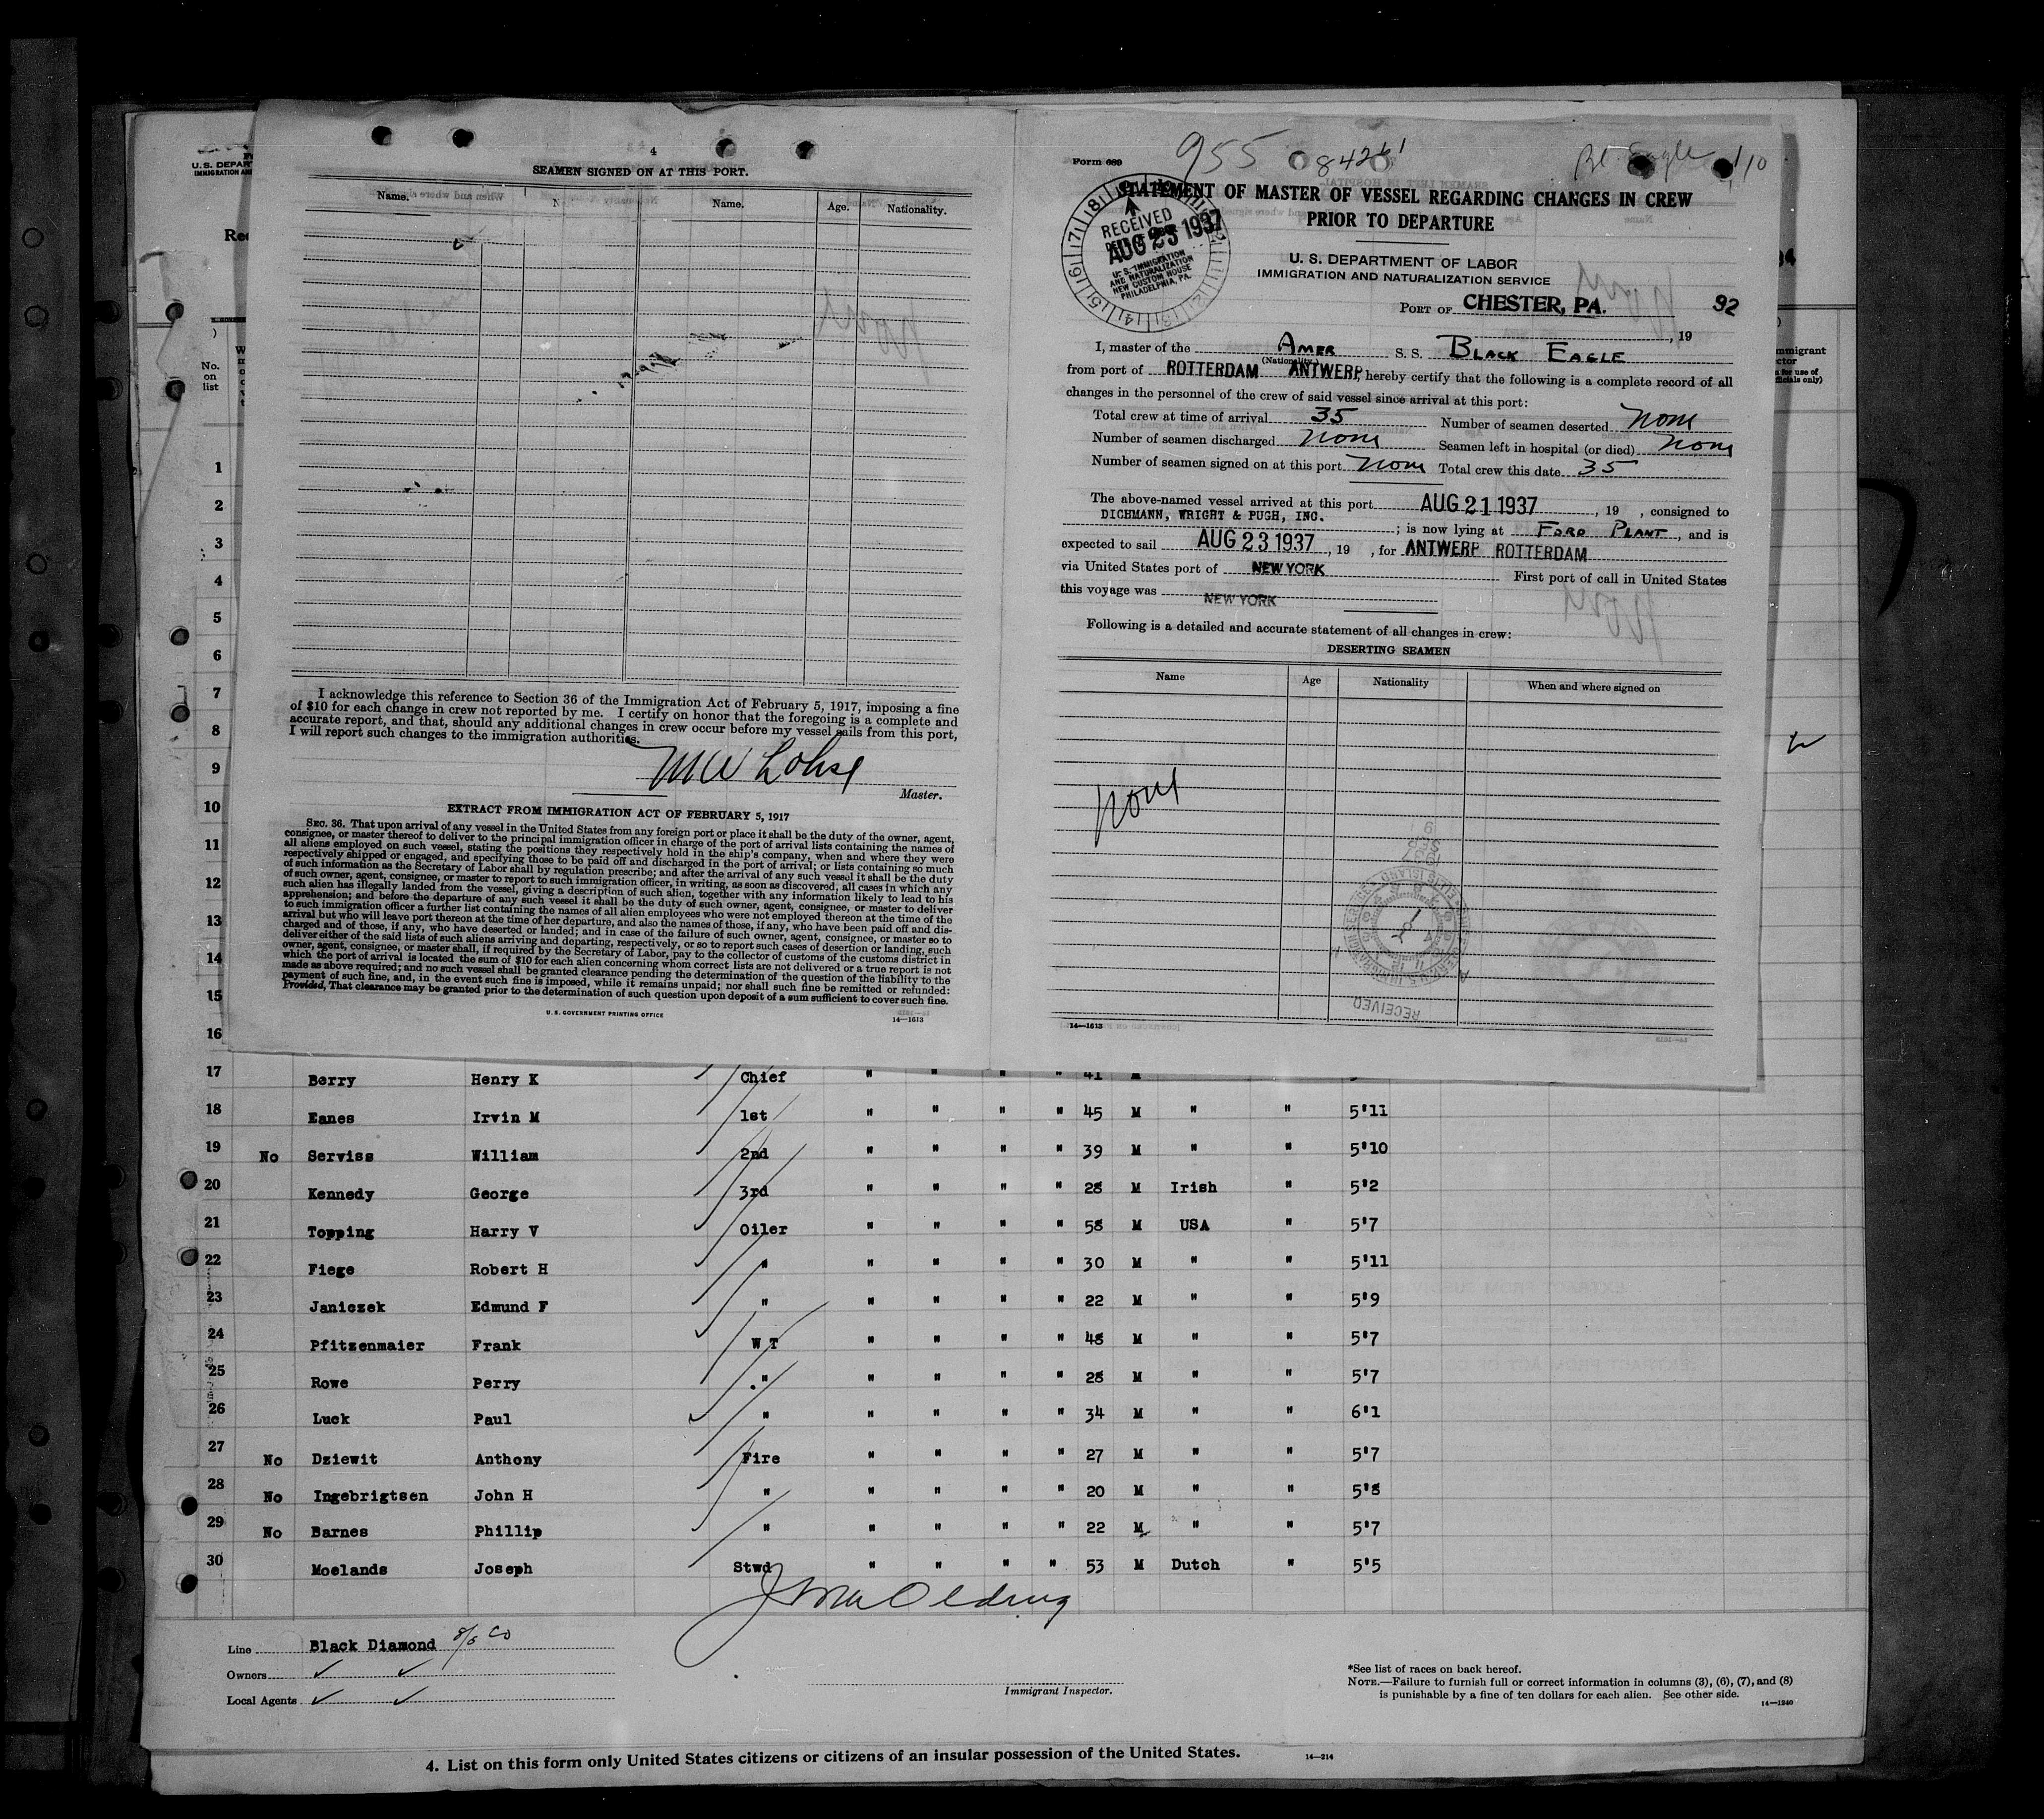 4
SEAMEN SIGNED ON AT THIS PORT.
Name. Name. Age. Nationality.
I acknowledge this reference to Section 36 of the Immigration Act of February 5, 1917, imposing a fine
of $10 for each change in crew not reported by me. I certify on honor that the foregoing is a complete and
accurate report, and that, should any additional changes in crew occur before my vessel sails from this port,
I will report such changes to the immigration authorities.
Master.
EXTRACT FROM IMMIGRATION ACT OF FEBRUARY 5, 1917
SEC. 36. That upon arrival of any vessel in the United States from any foreign port or place it shall be the duty of the owner, agent,
consignee, or master thereof to deliver to the principal immigration officer in charge of the port of arrival lists containing the names of
all aliens employed on such vessel, stating the positions they respectively hold in the ship's company, when and where they were
respectively shipped or engaged, and specifying those to be paid off and discharged in the port of arrival; or lists containing so much
of such information as the Secretary of Labor shall by regulation prescribe; and after the arrival of any such vessel it shall be the duty
of such owner, agent, consignee, or master to report to such immigration officer, in writing, as soon as discovered, all cases in which any
such alien has illegally landed from the vessel, giving a description of such alien, together with any information likely to lead to his
apprehension; and before the departure of any such vessel it shall be the duty of such owner, agent, consignee, or master to deliver
to such immigration officer a further list containing the names of all alien employees who were not employed thereon at the time of the
arrival but who will leave port thereon at the time of her departure, and also the names of those, if any, who have been paid off and dis-
charged and of those, if any, who have deserted or landed; and in case of the failure of such owner, agent, consignee, or master so to
deliver either of the said lists of such aliens arriving and departing, respectively, or so to report such cases of desertion or landing, such
owner, agent, consignee, or master shall, if required by the Secretary of Labor, pay to the collector of customs of the customs district in
which the port of arrival is located the sum of $10 for each alien concerning whom correct lists are not delivered or a true report is not
made as above required; and no such vessel shall be granted clearance pending the determination of the question of the liability to the
payment of such fine, and, in the event such fine is imposed, while it remains unpaid; nor shall such fine be remitted or refunded:
Provided, That clearance may be granted prior to the determination of such question upon deposit of a sum sufficient to cover such fine.
U. S. GOVERNMENT PRINTING OFFICE 14—1613
Form 689 955 Bl. Eagle 110
STATEMENT OF MASTER OF VESSEL REGARDING CHANGES IN CREW
PRIOR TO DEPARTURE
RECEIVED
AUG 23 1937
U. S. IMMIGRATION
AND NATURALIZATION
NEW CUSTOM HOUSE
PHILADELPHIA, PA.
U. S. DEPARTMENT OF LABOR
IMMIGRATION AND NATURALIZATION SERVICE
PORT OF CHESTER, PA. 92
, 19
I, master of the AMER S. S. BLACK EAGLE
(Nationality)
from port of ROTTERDAM ANTWERP, hereby certify that the following is a complete record of all
changes in the personnel of the crew of said vessel since arrival at this port:
Total crew at time of arrival 35 Number of seamen deserted None
Number of seamen discharged None Seamen left in hospital (or died) None
Number of seamen signed on at this port None Total crew this date 35
The above-named vessel arrived at this port AUG 21 1937, 19 , consigned to
DICHMANN, WRIGHT & PUGH, INC. ; is now lying at FORD PLANT, and is
expected to sail AUG 23 1937, 19 , for ANTWERP ROTTERDAM
via United States port of NEW YORK First port of call in United States
this voyage was NEW YORK
Following is a detailed and accurate statement of all changes in crew:
DESERTING SEAMEN
Name Age Nationality When and where signed on
None
RECEIVED
14—1613
U. S. DEPAR
IMMIGRATION AN
No.
on
list
1
2
3
4
5
6
7
8
9
10
11
12
13
14
15
16
17 Berry Henry K Chief " " " " 41 M
18 Eanes Irvin M 1st " " " " 45 M " " 5'11
19 No Serviss William 2nd " " " " 39 M " " 5'10
20 Kennedy George 3rd " " " " 28 M Irish " 5'2
21 Topping Harry V Oiler " " " " 58 M USA " 5'7
22 Fiege Robert H " " " " " 30 M " " 5'11
23 Janiczek Edmund F " " " " " 22 M " " 5'9
24 Pfitzenmaier Frank W T " " " " 48 M " " 5'7
25 Rowe Perry " " " " " 28 M " " 5'7
26 Luck Paul " " " " " 34 M " " 6'1
27 No Dziewit Anthony Fire " " " " 27 M " " 5'7
28 No Ingebrigtsen John H " " " " " 20 M " " 5'8
29 No Barnes Phillip " " " " " 22 M " " 5'7
30 Moelands Joseph Stwd " " " " 53 M Dutch " 5'5
Line Black Diamond S/S Co
Owners
Local Agents
Immigrant Inspector.
*See list of races on back hereof.
NOTE.—Failure to furnish full or correct information in columns (3), (6), (7), and (8)
is punishable by a fine of ten dollars for each alien. See other side.
14—1240
4. List on this form only United States citizens or citizens of an insular possession of the United States. 14—214